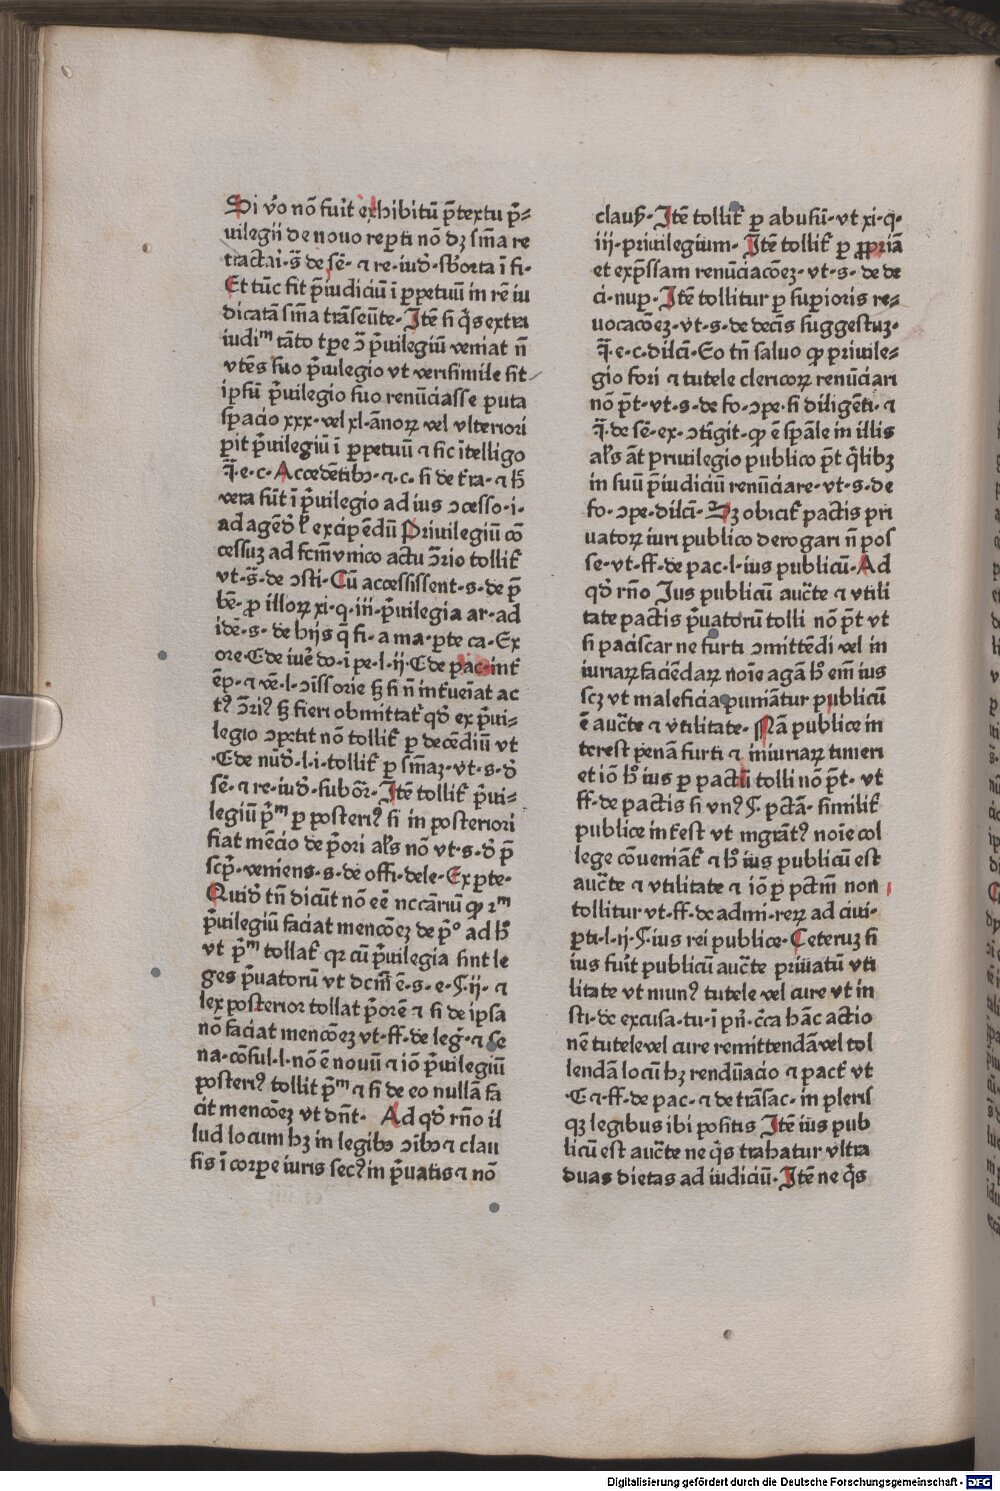 Si v̄o nō fuit exhibitū p̄textu p̄⸗
uilegii de nouo reꝑti nō dꝫ sn̄ia re
tractai·s̄·de sē·⁊ re·iud̄·sb̄orta ī fi·
Et tūc fit p̄iudiciū ī ꝑpetuū in rē iu
dicatā sn̄ia trāseūte·Itē si q̄s extra
iudiᵐ tāto tꝑe ↄ̄ p̄uilegiū veniat n̄
vtēs suo p̄uilegio vt verisimile sit
ipsū p̄uilegio suo renūciasse puta
spacio xxx·vel xl·ānoꝝ vel vlteriori
ꝑit p̄uilegiū ī ꝑpetuū ⁊ sic ītelligo
q̄·e·c·Accedētibꝫ·⁊·c·si de t̄ra·⁊ h̄
vera sūt ī p̄uilegio ad ius ↄcesso·i·
ad agēd̄ l̄ excipēdū Priuilegiū cō
cessuꝫ ad fcm̄ vnico actu ↄ̄rio tollit̄
vt·s̄·de ↄsti·Cū accessissent·s·de p̄
bē·ꝓ illoꝝ xi·q·iii·p̄uilegia ar·ad
idē·s·de hijs q̄ fi·a ma·ꝑte ca·Ex
ore·C de iuē do·ī pe·l·ij·C de pac·int̄
ēp·⁊ vē·l·ↄīssorie ꝫ si n̄ int̄ueīat ac
tꝰ ↄ̄riꝰ ꝫ fieri obmittat̄ qd̄ ex p̄ui⸗
legio ↄpetit nō tollit̄ ꝑ decēdiū vt
·C de nūd̄·l·i·tollit̄ ꝑ sn̄iaꝫ·vt·s·d̄
sē·⁊ re·iud̄·subōr·Itē tollit̄ p̄ui⸗
legiū p̄ᵐ ꝑ posteriꝰ si in posteriori
fiat mēcio de p̄ori al̄s nō vt·s·d̄ p̄
scp̄·veniens·s·de offi·dele·Ex ꝑte·
Quid̄ tn̄ dicūt nō eē nccāriū ꝙ 2ᵐ
p̄uilegiū faciat mencōeꝫ de p̄º ad h̄
vt p̄ᵐ tollat̄ qꝛ cū p̄uilegia sint le
ges p̄uatorū vt dcm̄ ē·s·e·¶·ij·⁊
lex posterior tollat p̄orē ⁊ si de ipsa
nō faciat mencōeꝫ vt·ff·de leḡ·⁊ se
na·cōsul·l·nō ē nouū ⁊ iō p̄uilegiū
posteriꝰ tollit p̄ᵐ ⁊ si de eo nullā fa
cit mencōeꝫ vt dn̄t· Ad qd̄ rn̄o il
lud locum hꝫ in legibꝫ ↄībꝫ ⁊ clau
sis ī corꝑe iuris secꝰ in p̄uatis ⁊ nō
claus̄·Itē tollit̄ ꝑ abusū·vt xi·q·
iij·priuilegium·Itē tollit̄ ꝑ ꝓpriā
et exp̄ssam renūciacōeꝫ·vt·s·de de
ci·nuꝑ·Itē tollitur ꝑ suꝑioris re⸗
uocacōeꝫ·vt·s·de decīs suggestuꝫ·
q̄·e·c·dilcī·Eo tn̄ saluo ꝙ priuile⸗
gio fori ⁊ tutele clericoꝝ renūciari
nō p̄t·vt·s·de fo·ↄpe·si diligēti·⁊
q̄·de sē·ex·ↄtīgit·ꝙ ē sp̄ale in illis
al̄s āt priuilegio publico p̄t q̄libꝫ
in suū p̄iudiciū renūciare·vt·s·de
fo·ↄpe·dilcī·Sꝫ obicit̄ pactis pri
uatoꝝ iuri publico derogari n̄ pos
se·vt·ff·de pac·l·ius publicū·Ad
qd̄ rn̄o Ius publicū auc̄te ⁊ vtili
tate pactis p̄uatorū tolli nō p̄t vt
si paciscar ne furti ↄmittēdi vel in
iuriaꝝ faciēdaꝝ noīe agā h̄ em̄ ius
scꝫ vt maleficia puniātur publicū
ē auc̄te ⁊ vtilitate·Nā publice in
terest penā furti ⁊ iniuriaꝝ timeri
et iō h̄ ius ꝑ pactū tolli nō p̄t·vt
ff·de pactis si vnꝰ ¶·pctā·similit̄
publice int̄est vt migrātꝰ noīe col
lege cōueniāt̄ ⁊ h̄ ius publicū est
auc̄te ⁊ vtilitate ⁊ iō ꝑ pctm̄ non
tollitur vt·ff·de admi·reꝝ ad ciui·
ꝑti·l·ij·¶·ius rei publice·Ceteruꝫ si
ius fuit publicū auc̄te priuatū vti
litate vt munꝰ tutele vel cure vt in
sti·de excusa·tu·ī pn̄·c̄ca hāc actio
nē tutele vel cure remittendā vel tol
lendā locū hꝫ renūciacio ⁊ pact̄ vt
·C ⁊·ff·de pac·⁊ de trāsac·in pleris
qꝫ legibus ibi positis Itē ius pub
licū est auc̄te ne q̄s trahatur vltra
duas dietas ad iudiciū·Itē ne q̄s
Digitalisierung gefördert durch die Deutsche Forschungsgemeinschaft - DFG